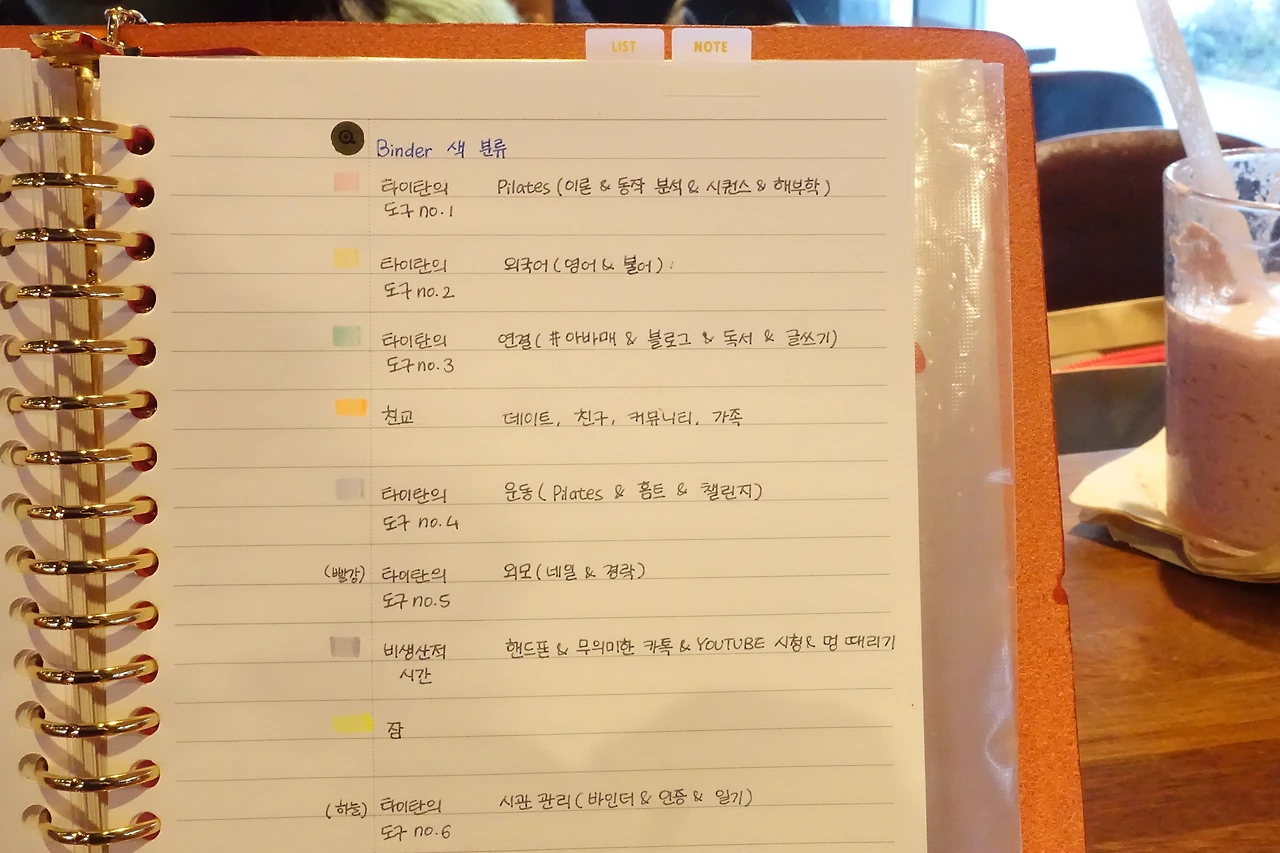 LIST NOTE
Binder 색 분류
타이탄의 Pilates (이론 & 동작 분석 & 시퀀스 & 해부학)
도구 no.1
타이탄의 외국어 (영어 & 불어)
도구 no.2
타이탄의 연결 (#아바매 & 블로그 & 독서 & 글쓰기)
도구 no.3
친교 데이트, 친구, 커뮤니티, 가족
타이탄의 운동 (Pilates & 홈트 & 챌린지)
도구 no.4
(빨강) 타이탄의 외모 (네일 & 경락)
도구 no.5
비생산적 핸드폰 & 무의미한 카톡 & YOUTUBE 시청 & 멍 때리기
시간
잠
(하늘) 타이탄의 시관 관리 (바인더 & 인증 & 일기)
도구 no.6